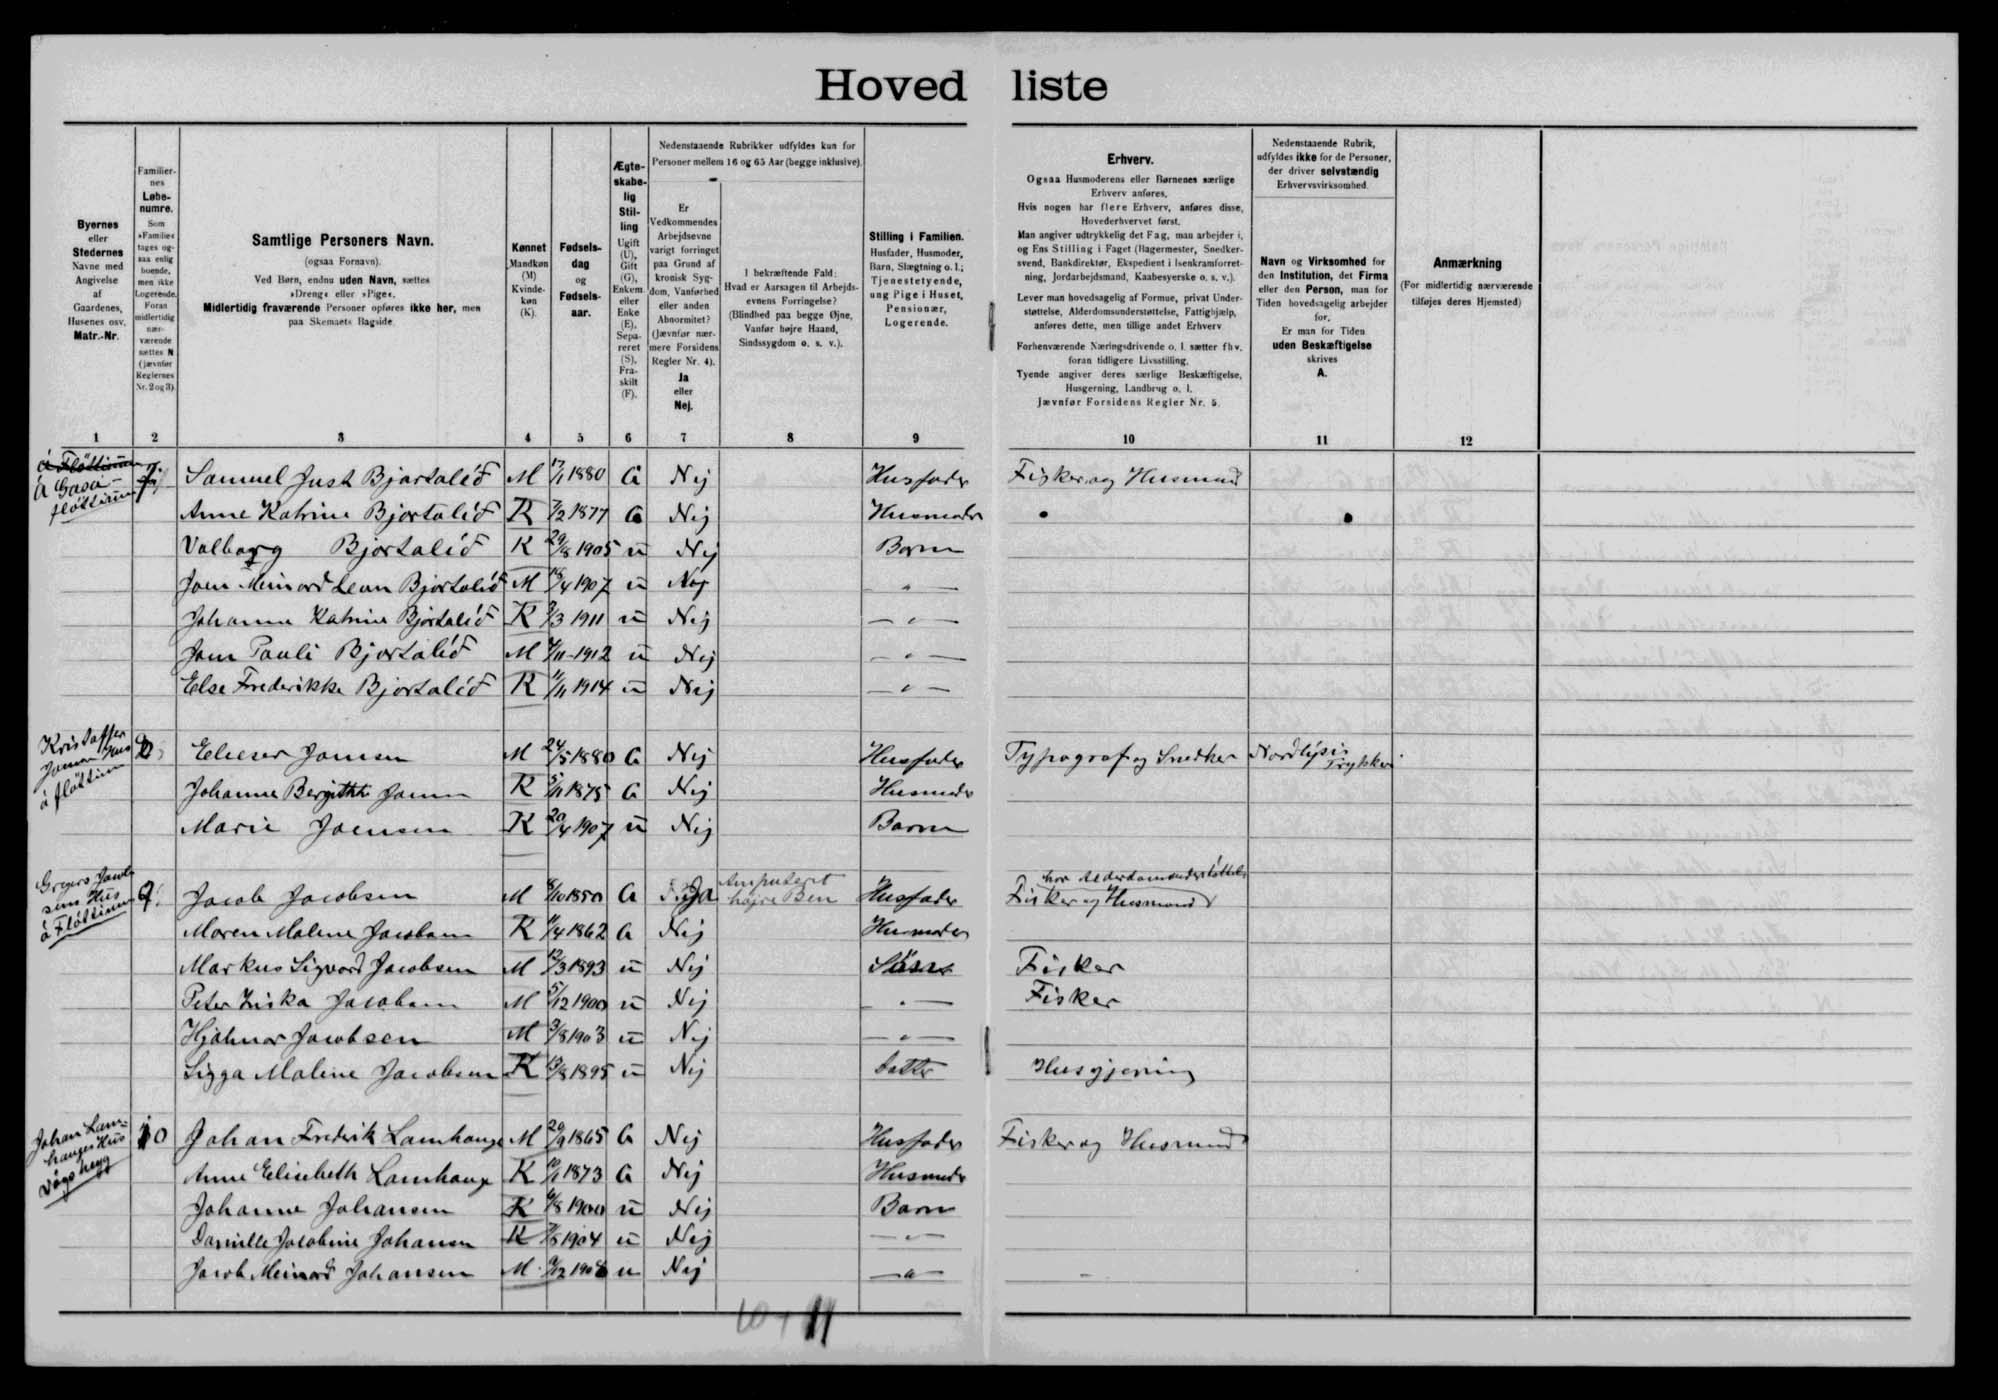 Hoved liste
Byernes
eller
Stedernes
Navne med
Angivelse
af
Gaardenes,
Husenes osv.
Matr.-Nr.
Familier-
nes
Løbe-
numre.
Som
»Familie«
tages og-
saa enlig
boende,
men ikke
Logerende.
Foran
midlertidig
nær-
værende
sættes N
(jævnfør
Reglernes
Nr. 2 og 3).
Samtlige Personers Navn.
(ogsaa Fornavn).
Ved Børn, endnu uden Navn, sættes
»Dreng« eller »Pige«.
Midlertidig fraværende Personer opføres ikke her, men
paa Skemaets Bagside.
Kønnet
Mandkøn
(M)
Kvinde-
køn
(K).
Fødsels-
dag
og
Fødsels-
aar.
Ægte-
skabe-
lig
Stil-
ling
Ugift
(U),
Gift
(G),
Enkem.
eller
Enke
(E),
Sepa-
reret
(S),
Fra-
skilt
(F).
Nedenstaaende Rubrikker udfyldes kun for
Personer mellem 16 og 65 Aar (begge inklusive).
Er
Vedkommendes
Arbejdsevne
varigt forringet
paa Grund af
kronisk Syg-
dom, Vanførhed
eller anden
Abnormitet?
(Jævnfør nær-
mere Forsidens
Regler Nr. 4).
Ja
eller
Nej.
I bekræftende Fald:
Hvad er Aarsagen til Arbejds-
evnens Forringelse?
(Blindhed paa begge Øjne,
Vanfør højre Haand,
Sindssygdom o. s. v.).
Stilling i Familien.
Husfader, Husmoder,
Barn, Slægtning o. l.;
Tjenestetyende,
ung Pige i Huset,
Pensionær,
Logerende.
Erhverv.
Ogsaa Husmoderens eller Børnenes særlige
Erhverv anføres.
Hvis nogen har flere Erhverv, anføres disse,
Hovederhvervet først.
Man angiver udtrykkelig det Fag, man arbejder i,
og Ens Stilling i Faget (Bagermester, Snedker-
svend, Bankdirektør, Ekspedient i Isenkramforret-
ning, Jordarbejdsmand, Kaabesyerske o. s. v.).
Lever man hovedsagelig af Formue, privat Under-
støttelse, Alderdomsunderstøttelse, Fattighjælp,
anføres dette, men tillige andet Erhverv
Forhenværende Næringsdrivende o. l. sætter fhv.
foran tidligere Livsstilling.
Tyende angiver deres særlige Beskæftigelse,
Husgerning, Landbrug o. l.
Jævnfør Forsidens Regler Nr. 5.
Nedenstaaende Rubrik,
udfyldes ikke for de Personer,
der driver selvstændig
Erhvervsvirksomhed.
Navn og Virksomhed for
den Institution, det Firma
eller den Person, man for
Tiden hovedsagelig arbejder
for.
Er man for Tiden
uden Beskæftigelse
skrives
A.
Anmærkning
(For midlertidig nærværende
tilføjes deres Hjemsted)
1 2 3 4 5 6 7 8 9 10 11 12
á Fløttinum
Samuel Just Bjartalíð M 17/1 1880 G Nej Husfader Fisker og Husmand
Anne Katrine Bjartalíð K 7/2 1877 G Nej Husmoder
Valborg Bjartalíð K 29/8 1905 u Nej Barn
Joen Meinard Lean Bjartalíð M 18/4 1907 u Nej — " —
Johanne Katrine Bjartalíð K 3/3 1911 u Nej — " —
Joen Pauli Bjartalíð M 7/11 1912 u Nej — " —
Else Frederikke Bjartalíð K 11/11 1914 u Nej — " —
Kristoffer
Joensens Hus
á fløttinum
Elieser Joensen M 24/5 1880 G Nej Husfader Typograf og Snedker Nordlýsis Trykkeri
Johanne Bergitthe Joensen K 5/11 1875 G Nej Husmoder
Marie Joensen K 20/4 1907 u Nej Barn
Gregers Jacob-
sens Hus
á Fløttinum
9. Jacob Jacobsen M 8/10 1850 G Ja Amputeret højre Ben Husfader Fisker og Husmand har Alderdomsunderstøttelse
Maren Malene Jacobsen K 11/4 1862 G Nej Husmoder
Markus Sigvard Jacobsen M 12/3 1893 u Nej Søn Fisker
Peter Ziska Jacobsen M 5/12 1900 u Nej — " — Fisker
Hjalmar Jacobsen M 3/8 1903 u Nej — " —
Sigga Malene Jacobsen K 13/8 1895 u Nej Datter Husgjerning
Johan Lam-
hauges Hus
10 Johan Frederik Lamhauge M 29/9 1865 G Nej Husfader Fisker og Husmand
Anne Elisebeth Lamhauge K 10/1 1873 G Nej Husmoder
Johanne Johansen K 6/8 1900 u Nej Barn
Danielle Jacobine Johansen K 7/8 1904 u Nej — " —
Jacob Meinard Johansen M 9/12 1908 u Nej — " —
10 + 11